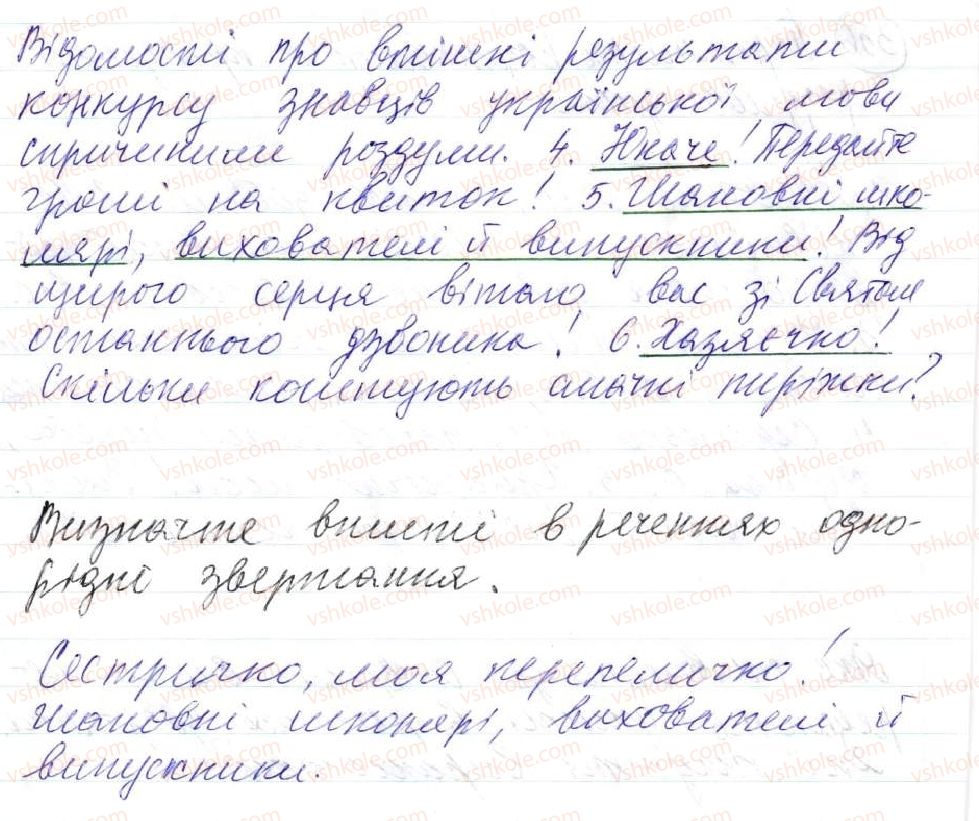 Відомості про втішні результати
конкурсу знавців української мови
спричинили роздуми. 4. Юначе! Передайте
гроші на квиток! 5. Шановні шко-
лярі, вихователі й випускники! Від
щирого серця вітаю вас зі Святом
останнього дзвоника! 6. Хазяєчко!
Скільки коштують смачні пиріжки?
Визначте вжиті в реченнях одно-
рідні звертання.
Сестричко, моя перепеличко!
Шановні школярі, вихователі й
випускники.